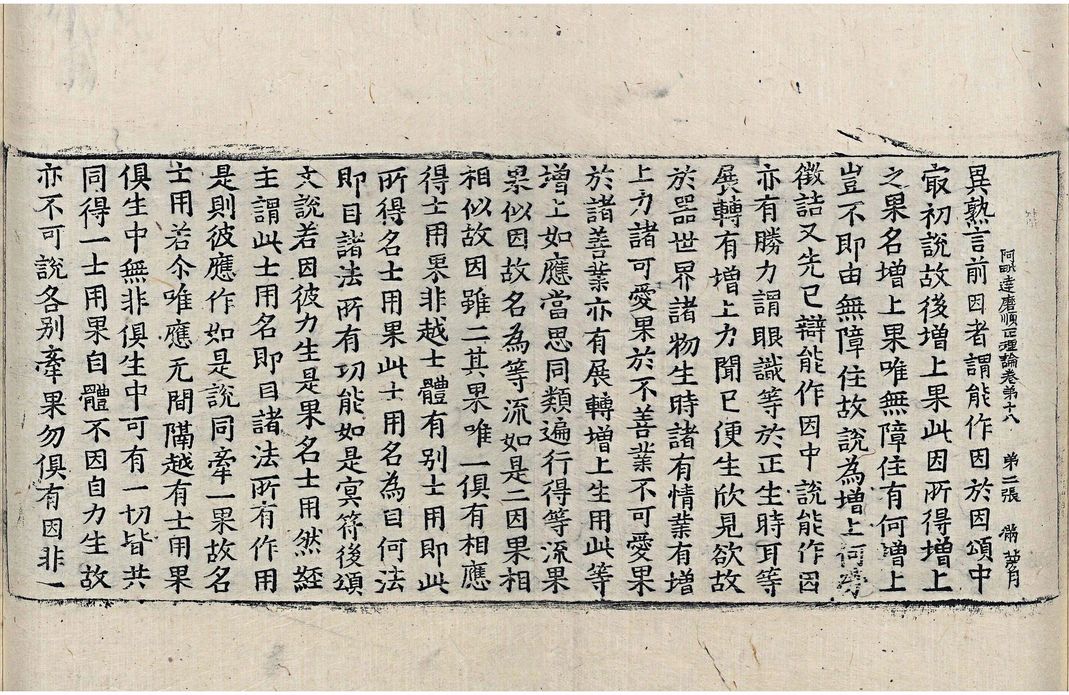 阿毗達磨順正理論卷第十八　第二張
異熟言前因者謂能作因於因頌中
㝡初說故後增上果此因所得增上
之果名增上果唯無障住有何增上
豈不即由無障住故說為增上何勞
徵詰又先已辯能作因中說能作因
亦有勝力謂眼識等於正生時耳等
展轉有增上力聞已便生欣見欲故
於器世界諸物生時諸有情業有增
上力諸可愛果於不善業不可愛果
於諸善業亦有展轉增上生用此等
增上如應當思同類遍行得等流果
果似因故名為等流如是二因果相
相似故因雖二其果唯一俱有相應
得士用果非越士體有別士用即此
所得名士用果此士用名為目何法
即目諸法所有功能如是冥符後頌
文說若因彼力生是果名士用然經
主謂此士用名即目諸法所有作用
是則彼應作如是說同牽一果故名
士用若尒唯應无間隔越有士用果
俱生中無非俱生中可有一切皆共
同得一士用果自體不因自力生故
亦不可說各別牽果勿俱有因非一